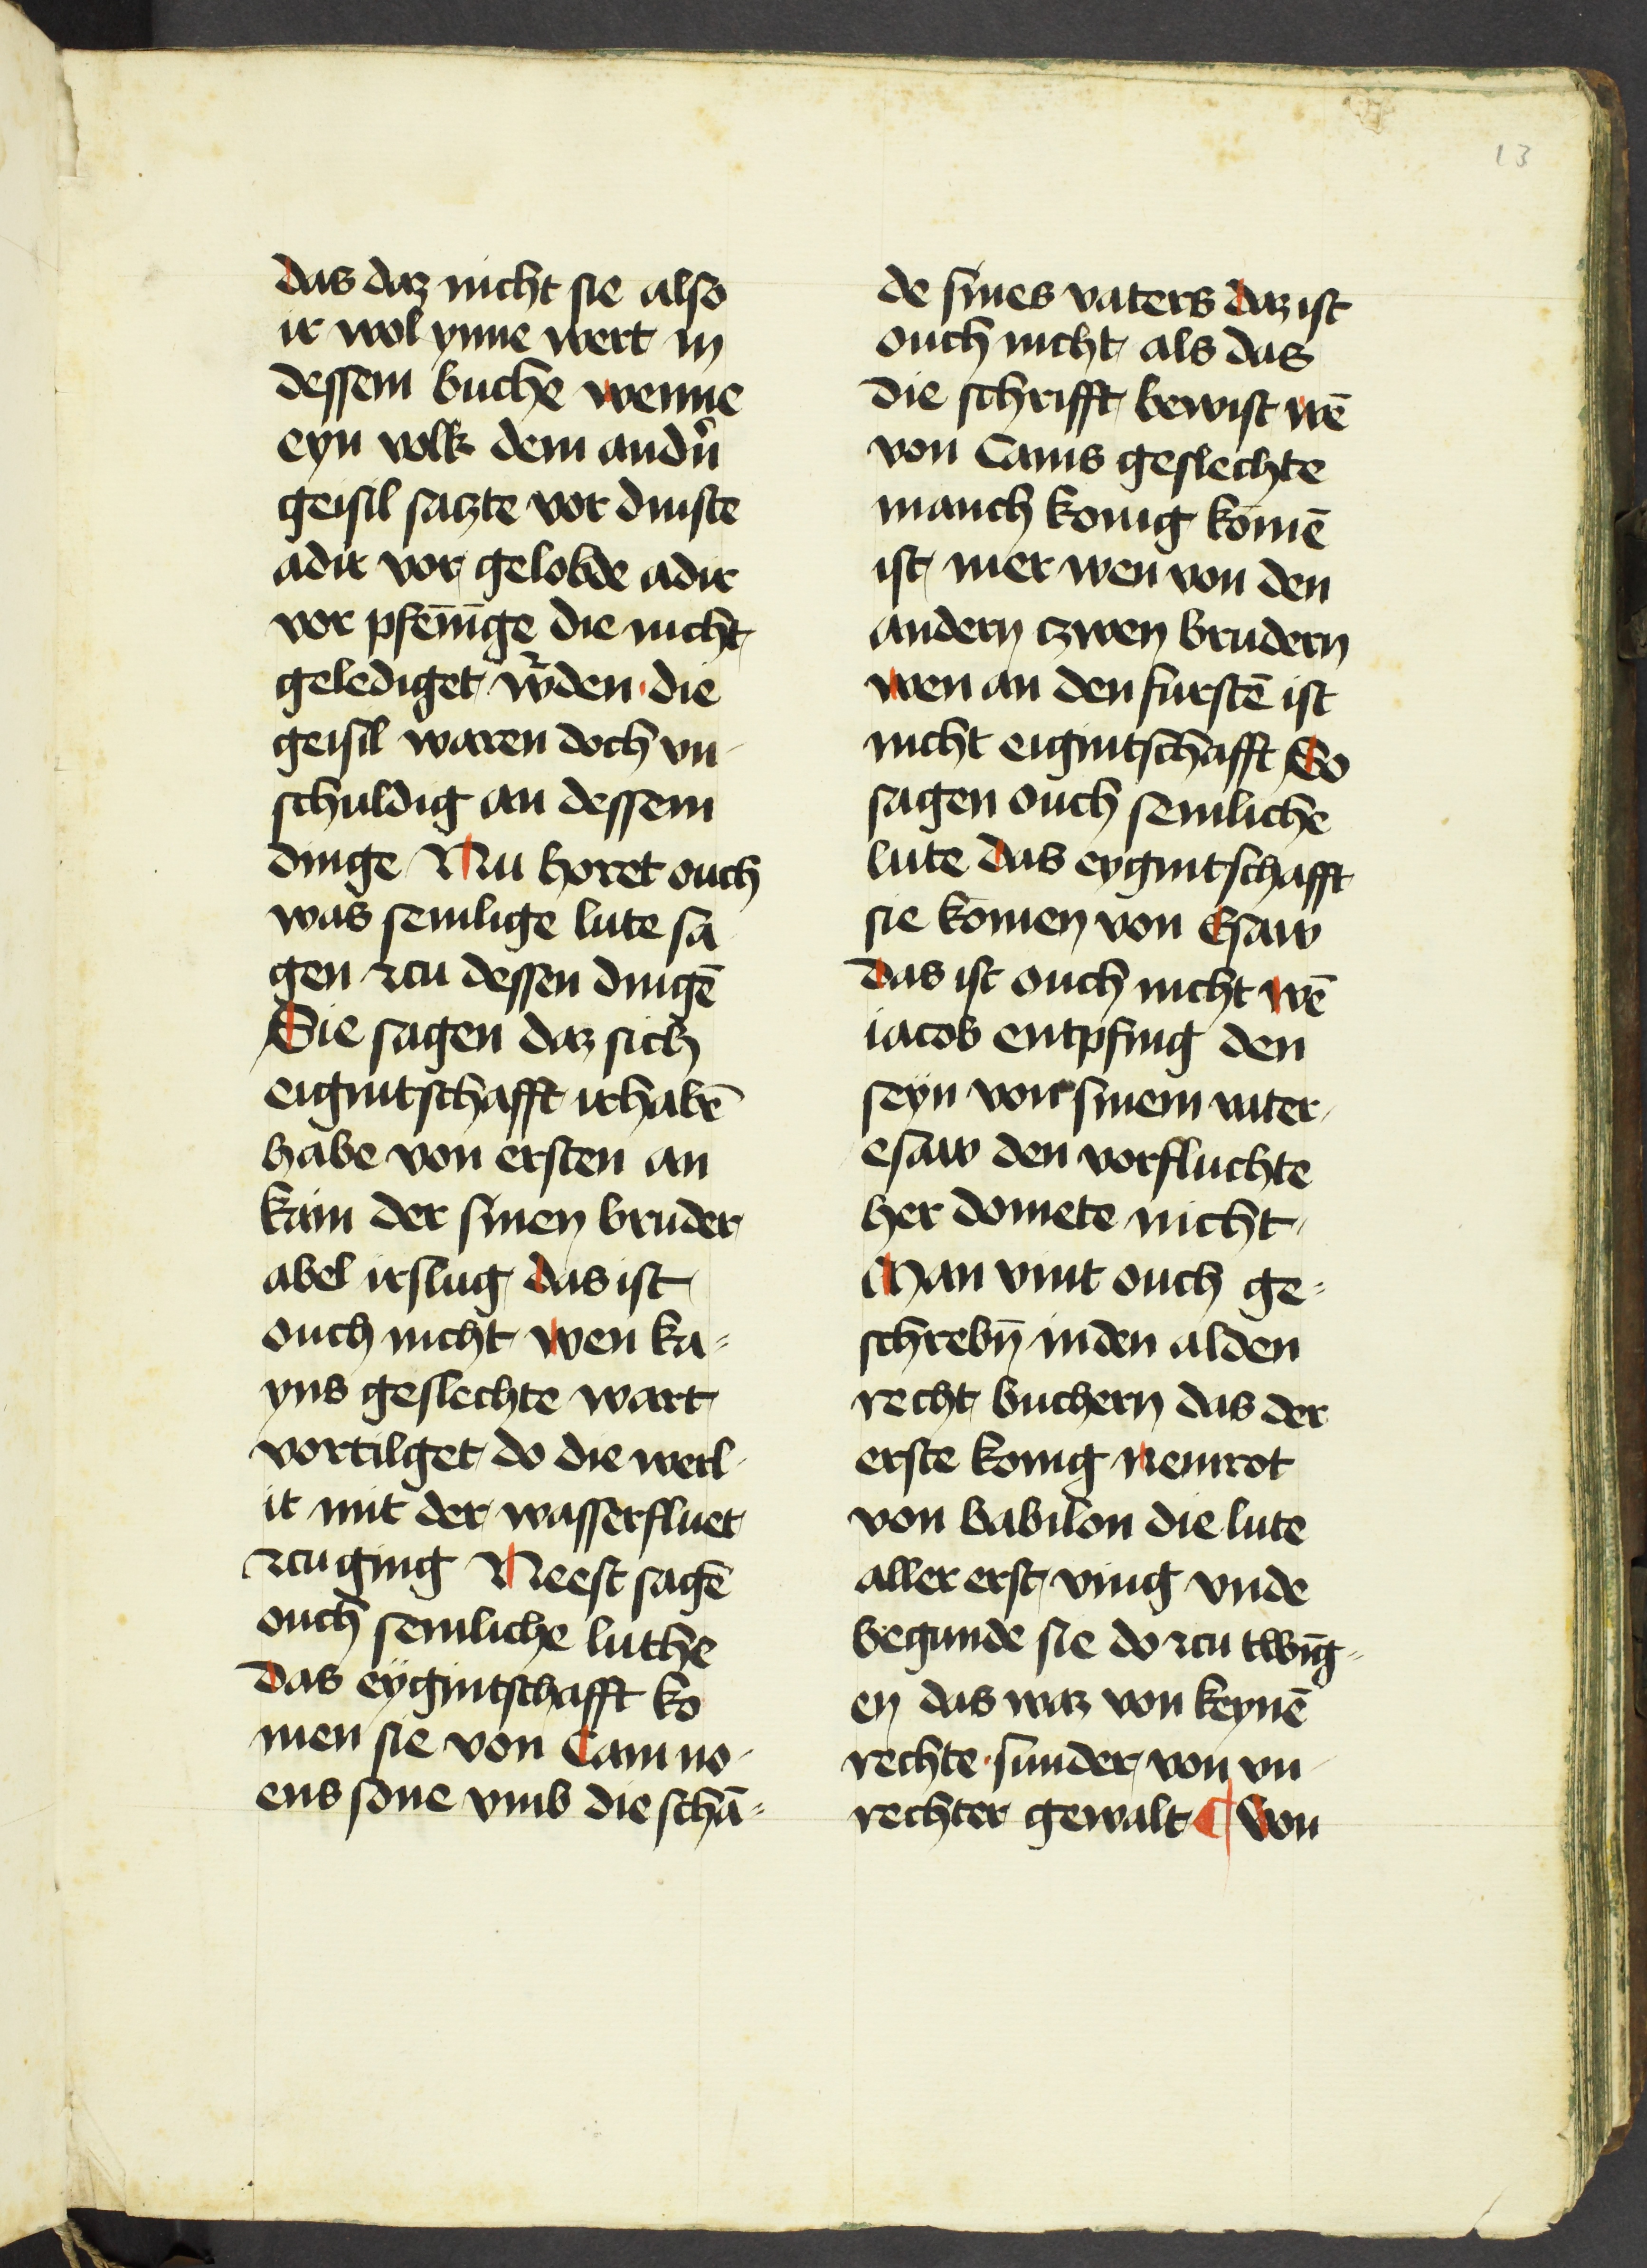 13
das daz nicht sie also
ir wol ynne wert in
dessem buche wenne
eyn volk dem andn̄
geisil saczte vor dinste
adir vor gelobde adir
vor pfen̄īge die nicht
gelediget w̄den · die
geisil waren doch vn-
schuldig an dessem
dinge Nu horet ouch
was semlige lute sa
gen zcu dessen dingē
Sie sagen daz sich
eigintschafft irhabē
habe von ersten an
kain der sinen bruder
abel irslug das ist
ouch nicht wen ka-
yns geslechte wart
vortilget do die werl-
it mit der wasserfluet
zcuging Neest sagē
ouch semliche luthe
das eygintschafft ko
men sie von Cam no-
ens sone vmb die schā-
de sines vaters daz ist
ouch nicht als das
die schrifft bewist wē
von Cams geslechte
manch konig komē
ist mer wen von den
andern czwen brudern
wen an den furstē ist
nicht eigintschafft So
sagen ouch semliche
lute das eygintschafft
sie komen von Esaw
das ist ouch nicht wē
iacob entpfing den
seyn von sinem vater
esaw den vorfluchte
her domete nicht
Man vint ouch ge-
schrebn̄ in den alden
recht buchern das der
erste konig nemrot
von babilon die lute
aller erst ving vnde
begunde sie do zcu twīg-
en das waz von keynē
rechte · sunder von vn-
rechter gewalt ¶ Von